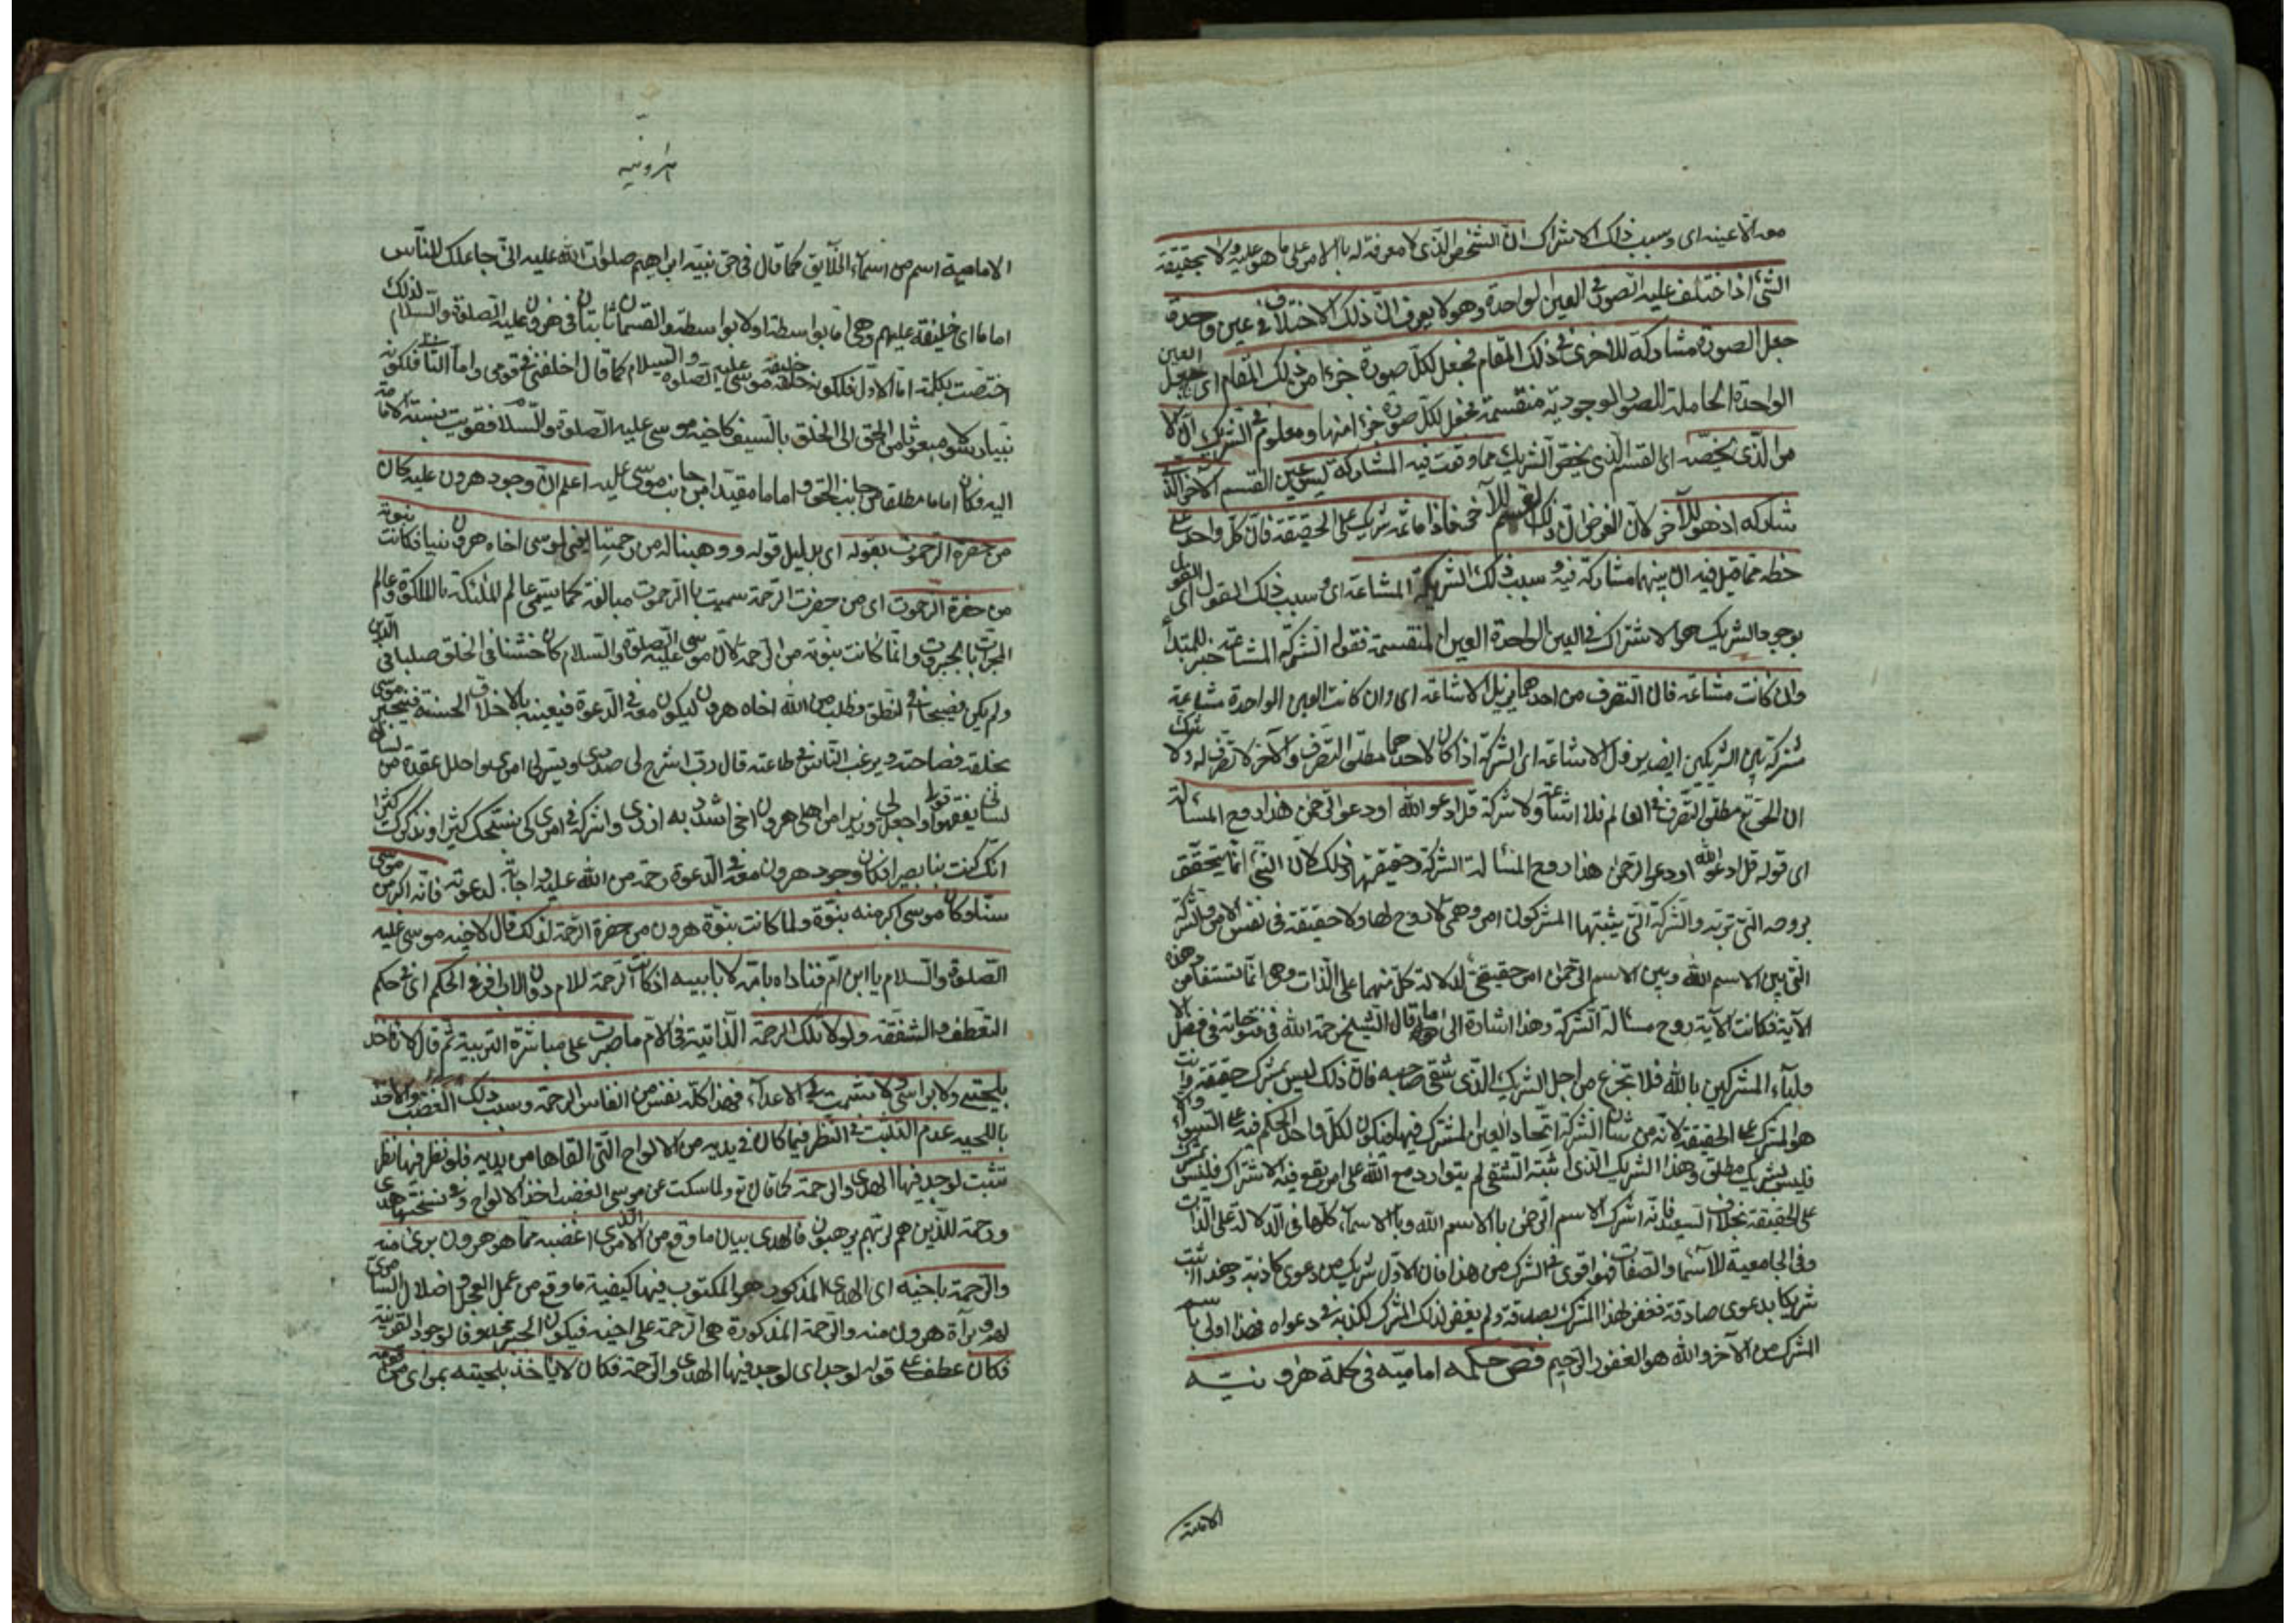 معه الا عينه اى وسبب ذلك الاشتراك ان الشخص الذى لا معرفة له بالامر على ما هو عليه ولا بحقيقة
الشئ اذا اختلف عليه الصور فى العين الواحدة وهو لا يعرف ان ذلك الاختلاف فى عين واحدة
جعل الصورة مشاركة للاخرى فى ذلك المقام فجعل لكل صورة جزءا من ذلك المقام اى جعل العين
الواحدة الحاملة للصور الوجودية منقسمة فجعل لكل صورة جزءا منها ومعلوم فى الشريك ان الا
مر الذى يخصه اى القسم الذى يخص الشريك مما وقعت فيه المشاركة ليس عين القسم الآخر الذى
شاركه اذ هو للآخر لان الفرض ان ذلك القسم للآخر فاذا ما ثمه شريك على الحقيقة فان كل واحد على
حظه مما قيل فيه ان بينهما مشاركة فيه وسبب ذلك الشركة المشاعة اى وسبب ذلك القول اى القول
بوجود الشريك هو الاشتراك فى العين الواحدة الغير المنقسمة فقوله الشركة المشاعة خبر للمبتدأ
وان كانت مشاعة فان التصرف من احدهما يزيل الاشاعة اى وان كانت العين الواحدة مشاعة
مشتركة بين الشريكين ايضا يزول الاشاعة اى الشركة اذا كان لاحدهما مطلق التصرف والآخر لا تصرف له ولا شك
ان الحق تع مطلق التصرف فى العالم فلا اشاعة ولا شركة قل ادعو الله او ادعو الرحمن هذا روح المسألة
اى قوله قل ادعو الله او ادعو الرحمن هذا روح المسألة الشركة وحقيقتها وذلك لان الشئ انما يتحقق
بروحه التى تربه والشركة التى يثبتها المشركون امر وهمى لا روح لها ولا حقيقة فى نفس الامر والشركة
التى بين الاسم الله وبين الاسم الرحمن امر حقيقى لدلالة كل منهما على الذات وهو انما يستفاد من هذه
الآية فكانت الآية روح مسألة الشركة وهذا اشارة الى ما قال الشيخ رحمة الله فى فتوحاته فى فصل الا
ولياء المشركين بالله فلا تجزع من اجل الشريك الذى شقى صاحبه فان ذلك ليس بمشرك حقيقة وانت
هو المشرك على الحقيقة لانه من شان الشركة اتحاد العين المشترك فيها فيكون لكل واحد الحكم فيه على السواء والا
فليس بشريك مطلق وهذا الشريك الذى اثبته الشقى لم يتوارد مع الله على امر يقع فيه الاشتراك فليس بمشرك
على الحقيقة بخلاف السعيد فانه اشرك الاسم الرحمن بالاسم الله وبالاسماء كلها فى الدلالة على الذات
وفى الجامعية للاسماء والصفات فهو اقوى فى الشرك من هذا فان الاول شريك من دعوى كاذبة وهذا اثبت
شريكا بدعوى صادقة فغفر لهذا المشرك بصدقه ولم يغفر لذلك المشرك لكذبه فى دعواه فهذا اولى باسم
المشرك من الآخر والله هو الغفور الرحيم فص حكمه اماميه فى كلمة هارونيه
الامامية
هارونيه
الامامية اسم من اسماء الخلايق كما قال فى حق نبيه ابراهيم صلوات الله عليه انى جاعلك للناس
اماما اى خليفة عليهم وهى اما بواسطة او لا بواسطة والقسمان ثابتان فى هرون عليه الصلوة والسلام لذلك
اختصت بكلمته اما الاول فلكونه خليفة موسى عليه الصلوة والسلام كما قال اخلفنى فى قومى واما الثانى فلكونه
نبيا رسولا مبعوثا من الحق الى الخلق بالسيف كاخيه موسى عليه الصلوة والسلام فقويت نسبة الامامة
اليه فكان اماما مطلقا من جانب الحق واماما مقيدا من جانب موسى عليه اعلم ان وجود هرون عليه كان
من حضرة الرحموت بقوله اى بدليل قوله ووهبنا له من رحمتنا يعنى لموسى اخاه هرون نبيا فكانت نبوته
من حضرة الرحموت اى من حضرت الرحمة سميت بالرحموت مبالغة كما يسمى عالم الملئكة بالملكوت وعالم
المجردات بالجبروت وانما كانت نبوته من الرحمة لان موسى عليه الصلوة والسلام كان خشنا فى الخلق صلبا فى الدين
ولم يكن فصيحا فى النطق فطلب من الله اخاه هرون ليكون معه فى الدعوة فيعينه بالاخلاق الحسنة فينجبر موسى
بخلقه فصاحته ويرغب الناس فى طاعته قال رب اشرح لى صدرى ويسر لى امرى واحلل عقدة من لسانى
يفقهوا قولى واجعل لى وزيرا من اهلى هرون اخى اشدد به ازرى واشركه فى امرى كى نسبحك كثيرا ونذكرك كثيرا
انك كنت بنا بصيرا فكان وجود هرون معه فى الدعوة رحمة من الله عليه واجابة لدعوته فانه اكبر من موسى
سنا وكان موسى اكبر منه نبوة ولما كانت نبوة هرون من حضرة الرحمة لذلك قال لاخيه موسى عليه
الصلوة والسلام يا ابن ام فناداه بامه لا بابيه اذ كانت الرحمة للام دون الاب اوفر فى الحكم اى فى حكم
التعطف والشفقة ولولا تلك الرحمة الذاتية فى الام ما صبرت على مباشرة التربية ثم قال لا تاخذ
بلحيتى ولا براسى ولا تشمت فى الاعداء فهذا كله نفس من انفاس الرحمة وسبب ذلك الغضب والاخذ
باللحيه عدم التثبت فى النظر فيما كان فى يديه من الالواح التى القاها من يديه فلو نظر فيها نظر
تثبت لوجد فيها الهدى والرحمة كما قال تع ولما سكت عن موسى الغضب اخذ الالواح وفى نسختها هدى
ورحمة للذين هم لربهم يرهبون فالهدى بيان ما وقع من الامر الذى اغضبه مما هو هرون برئ منه
والرحمة باخيه اى الهدى المذكور هو المكتوب فيها كيفية ما وقع من عمل العجل واضلال السامرى
لهم وبرآة هرون منه والرحمة المذكورة هى الرحمة على اخيه فيكون الخبر محذوفا لوجود القرينة
فكان عطف على قوله لوجد اى لوجد فيها الهدى والرحمة فكان لا ياخذ بلحيته بمراى من قومه